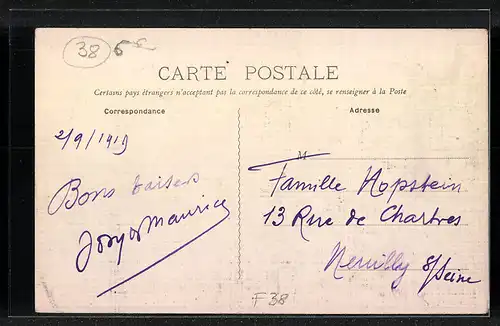 38
CARTE POSTALE
Certains pays étrangers n'acceptant pas la correspondance de ce côté, se renseigner à la Poste
Correspondance
Adresse
2/9/1919
M
Bons baisers
Famille Hopstein
13 Rue de Chartres
Maurice
Neuilly s/Seine
F38